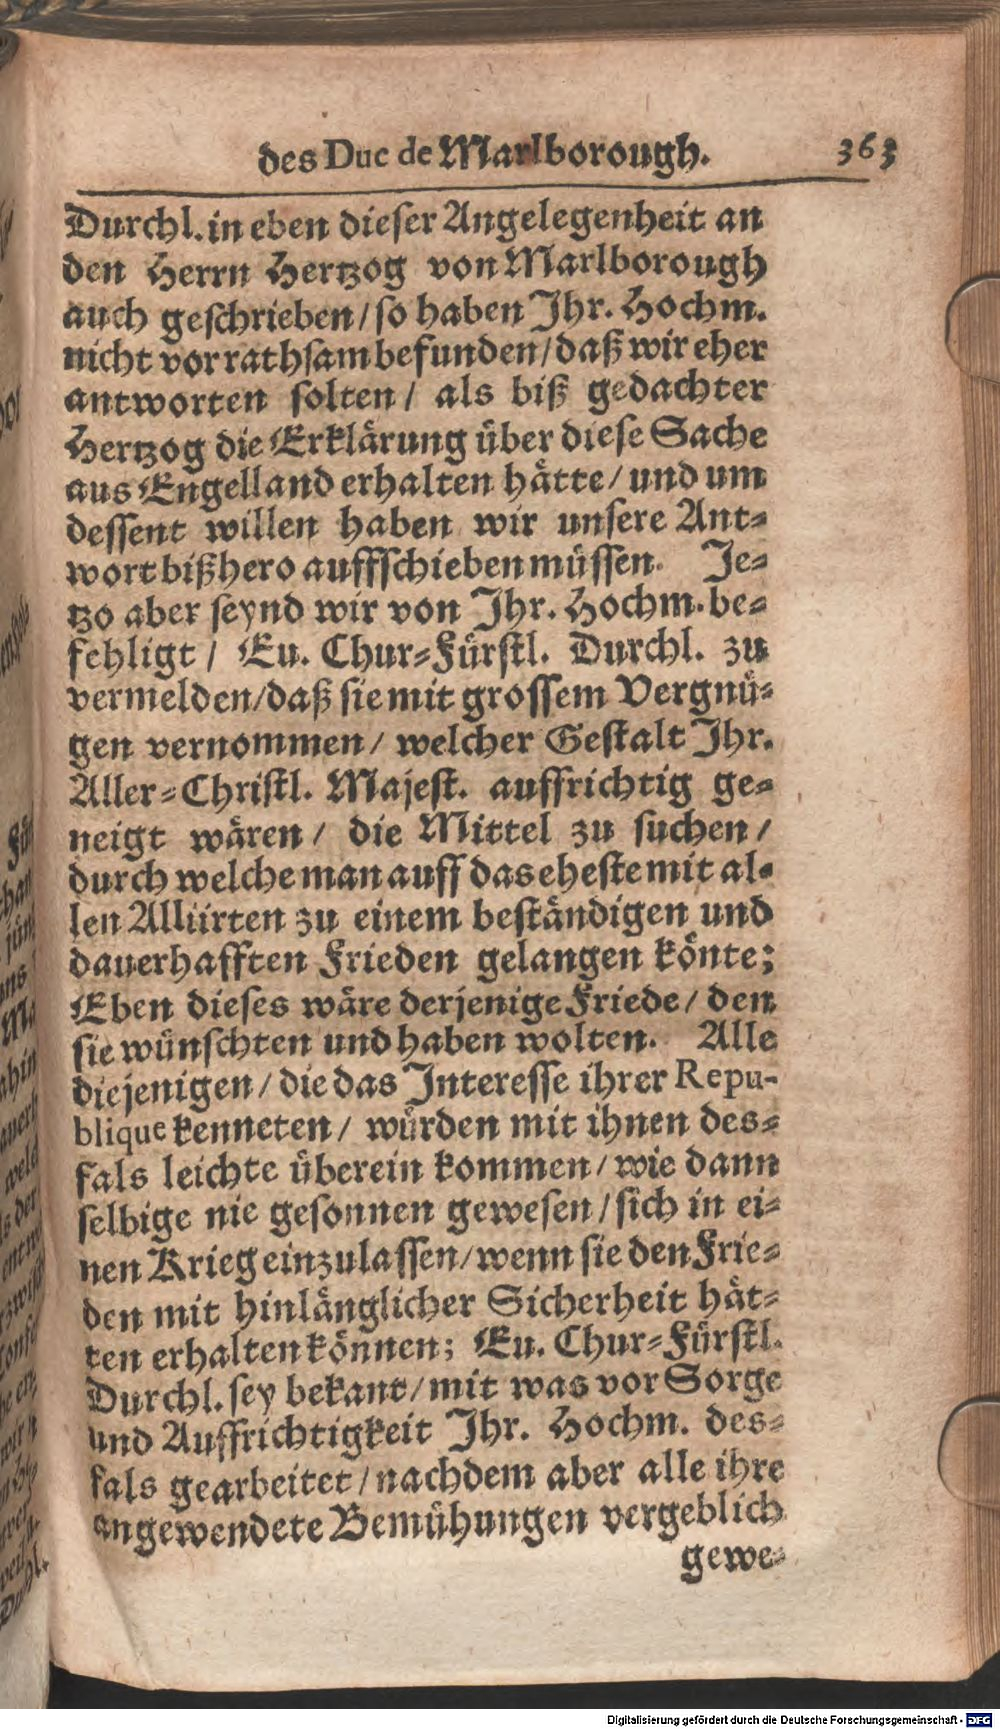 des Duc de Marlborough. 363
Durchl. in eben dieser Angelegenheit an
den Herrn Hertzog von Marlborough
auch geschrieben / so haben Jhr. Hochm.
nicht vor rathsam befunden / daß wir eher
antworten solten / als biß gedachter
Hertzog die Erklärung über diese Sache
aus Engelland erhalten hätte / und um
dessent willen haben wir unsere Ant-
wort bißhero auffschieben müssen. Je-
tzo aber seynd wir von Jhr. Hochm. be-
fehligt / Eu. Chur-Fürstl. Durchl. zu
vermelden / daß sie mit grossem Vergnü-
gen vernommen / welcher Gestalt Jhr.
Aller-Christl. Majest. auffrichtig ge-
neigt wären / die Mittel zu suchen /
durch welche man auff das eheste mit al-
len Alliirten zu einem beständigen und
dauerhafften Frieden gelangen könte;
Eben dieses wäre derjenige Friede / den
sie wünschten und haben wolten. Alle
diejenigen / die das Interesse ihrer Repu-
blique kenneten / würden mit ihnen des-
fals leichte überein kommen / wie dann
selbige nie gesonnen gewesen / sich in ei-
nen Krieg einzulassen / wenn sie den Frie-
den mit hinlänglicher Sicherheit hät-
ten erhalten können; Eu. Chur-Fürstl.
Durchl. sey bekant / mit was vor Sorge
und Auffrichtigkeit Jhr. Hochm. des-
fals gearbeitet / nachdem aber alle ihre
angewendete Bemühungen vergeblich
gewe-
Digitalisierung gefördert durch die Deutsche Forschungsgemeinschaft - DFG